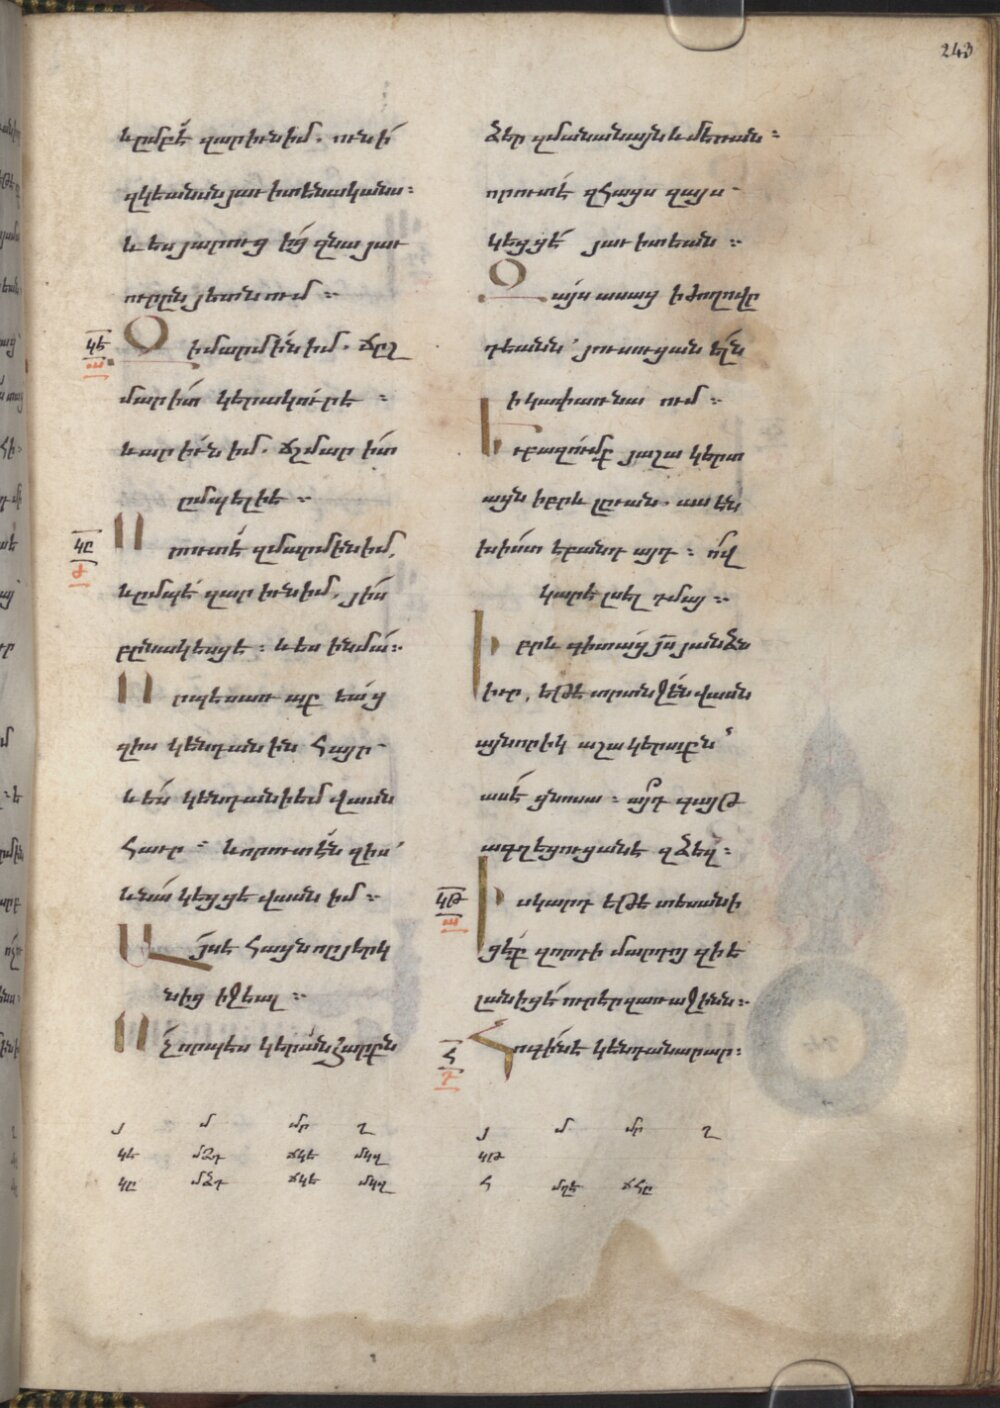 243
և ըմբէ զարիւն իմ. ունի
զկեանսն յաւիտենականս։
և ես յարուցից զնա յաւ
ուրըն յետնում։
կե
Զի մարմին իմ. ճըշ
մարիտ կերակուր է։
և արիւն իմ. ճշմարիտ
ըմպելի է։
կը
Որ ուտէ զմարմին իմ,
և ըմպէ զարիւն իմ, յիս
բընակեսցե։ և ես ի նմա։
Որպես առաքեաց
զիս կենդանին հայր
և ես կենդանի եմ վասն
հաւր։ և որ ուտէն զիս՝
և նա կեցցե վասն իմ։
Այս է հացն որ յերկ
նից իջեալ։
Ոչ որպես կերան հարքն
ձեր զմանանայն և մեռան։
որ ուտէ զհացս զայս
կեցցէ յաւիտեան։
Զայս ասաց ի ժողովը
դեանն՝ յուսուցանելն
ի կափառնաում։
Եւ բազումք յաշակերտ
այն իբրև լըւան. ասեն
խիստ է բանդ այդ։ ո՞վ
կարէ լսել դմայ։
Իբրև գիտաց յս յանձն
իւր, եթե տրտնջեն վասն
այնորիկ աշակերտքն՝
ասէ ցնոսա։ այդ գայթ
ագղեցուցանե զձեզ։
կթ
Իսկ արդ եթե տեսանի
ցեք զորդի մարդոյ զի ե
լանիցէ ուր էր զառաջինն։
հ
Հոգին է կենդանարար։
յ մ մր ղ
կե մձդ ճկե մկզ
կը մձդ ճկե մկզ
յ մ մր ղ
կթ
հ մղե ճհը